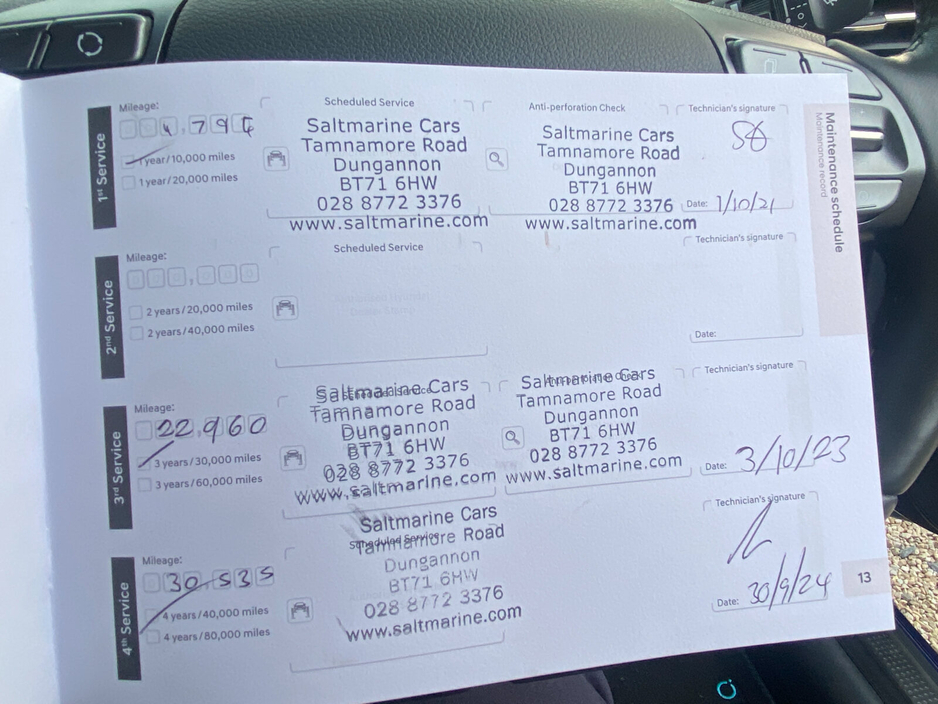 Maintenance schedule
Maintenance record
1st Service
Mileage:
1 year/10,000 miles
1 year/20,000 miles
Scheduled Service
Saltmarine Cars
Tamnamore Road
Dungannon
BT71 6HW
028 8772 3376
www.saltmarine.com
Anti-perforation Check
Saltmarine Cars
Tamnamore Road
Dungannon
BT71 6HW
028 8772 3376
www.saltmarine.com
Technician's signature
Date: 1/10/21
2nd Service
Mileage:
2 years/20,000 miles
2 years/40,000 miles
Scheduled Service
Technician's signature
Date:
3rd Service
Mileage:
22,960
3 years/30,000 miles
3 years/60,000 miles
Scheduled Service
Saltmarine Cars
Tamnamore Road
Dungannon
BT71 6HW
028 8772 3376
www.saltmarine.com
Saltmarine Cars
Tamnamore Road
Dungannon
BT71 6HW
028 8772 3376
www.saltmarine.com
Technician's signature
Date: 3/10/23
4th Service
Mileage:
30,535
4 years/40,000 miles
4 years/80,000 miles
Saltmarine Cars
Scheduled Service
Tamnamore Road
Dungannon
BT71 6HW
028 8772 3376
www.saltmarine.com
Technician's signature
Date: 30/9/24
13